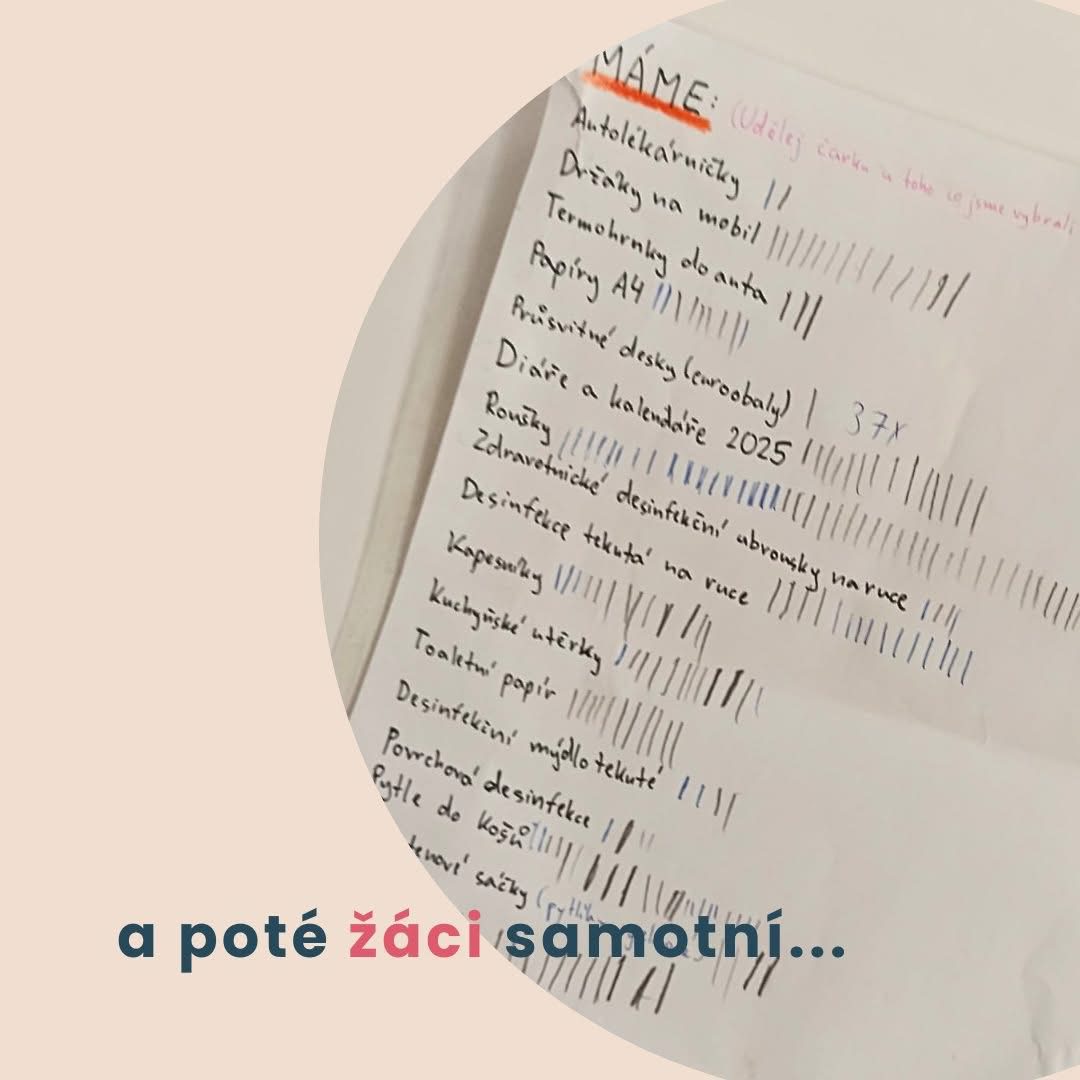 MÁME:
(Udělej čárku u toho co jsme vybrali
Autolékárničky
Držáky na mobil
Termohrnky do auta
Papíry A4
Průsvitné desky (euroobaly) 37x
Diáře a kalendáře 2025
Roušky
Zdravotnické desinfekční ubrousky na ruce
Desinfekce tekutá na ruce
Kapesníky
Kuchyňské utěrky
Toaletní papír
Desinfekční mýdlo tekuté
Povrchová desinfekce
Pytle do košů
tenové sáčky
a poté žáci samotní...